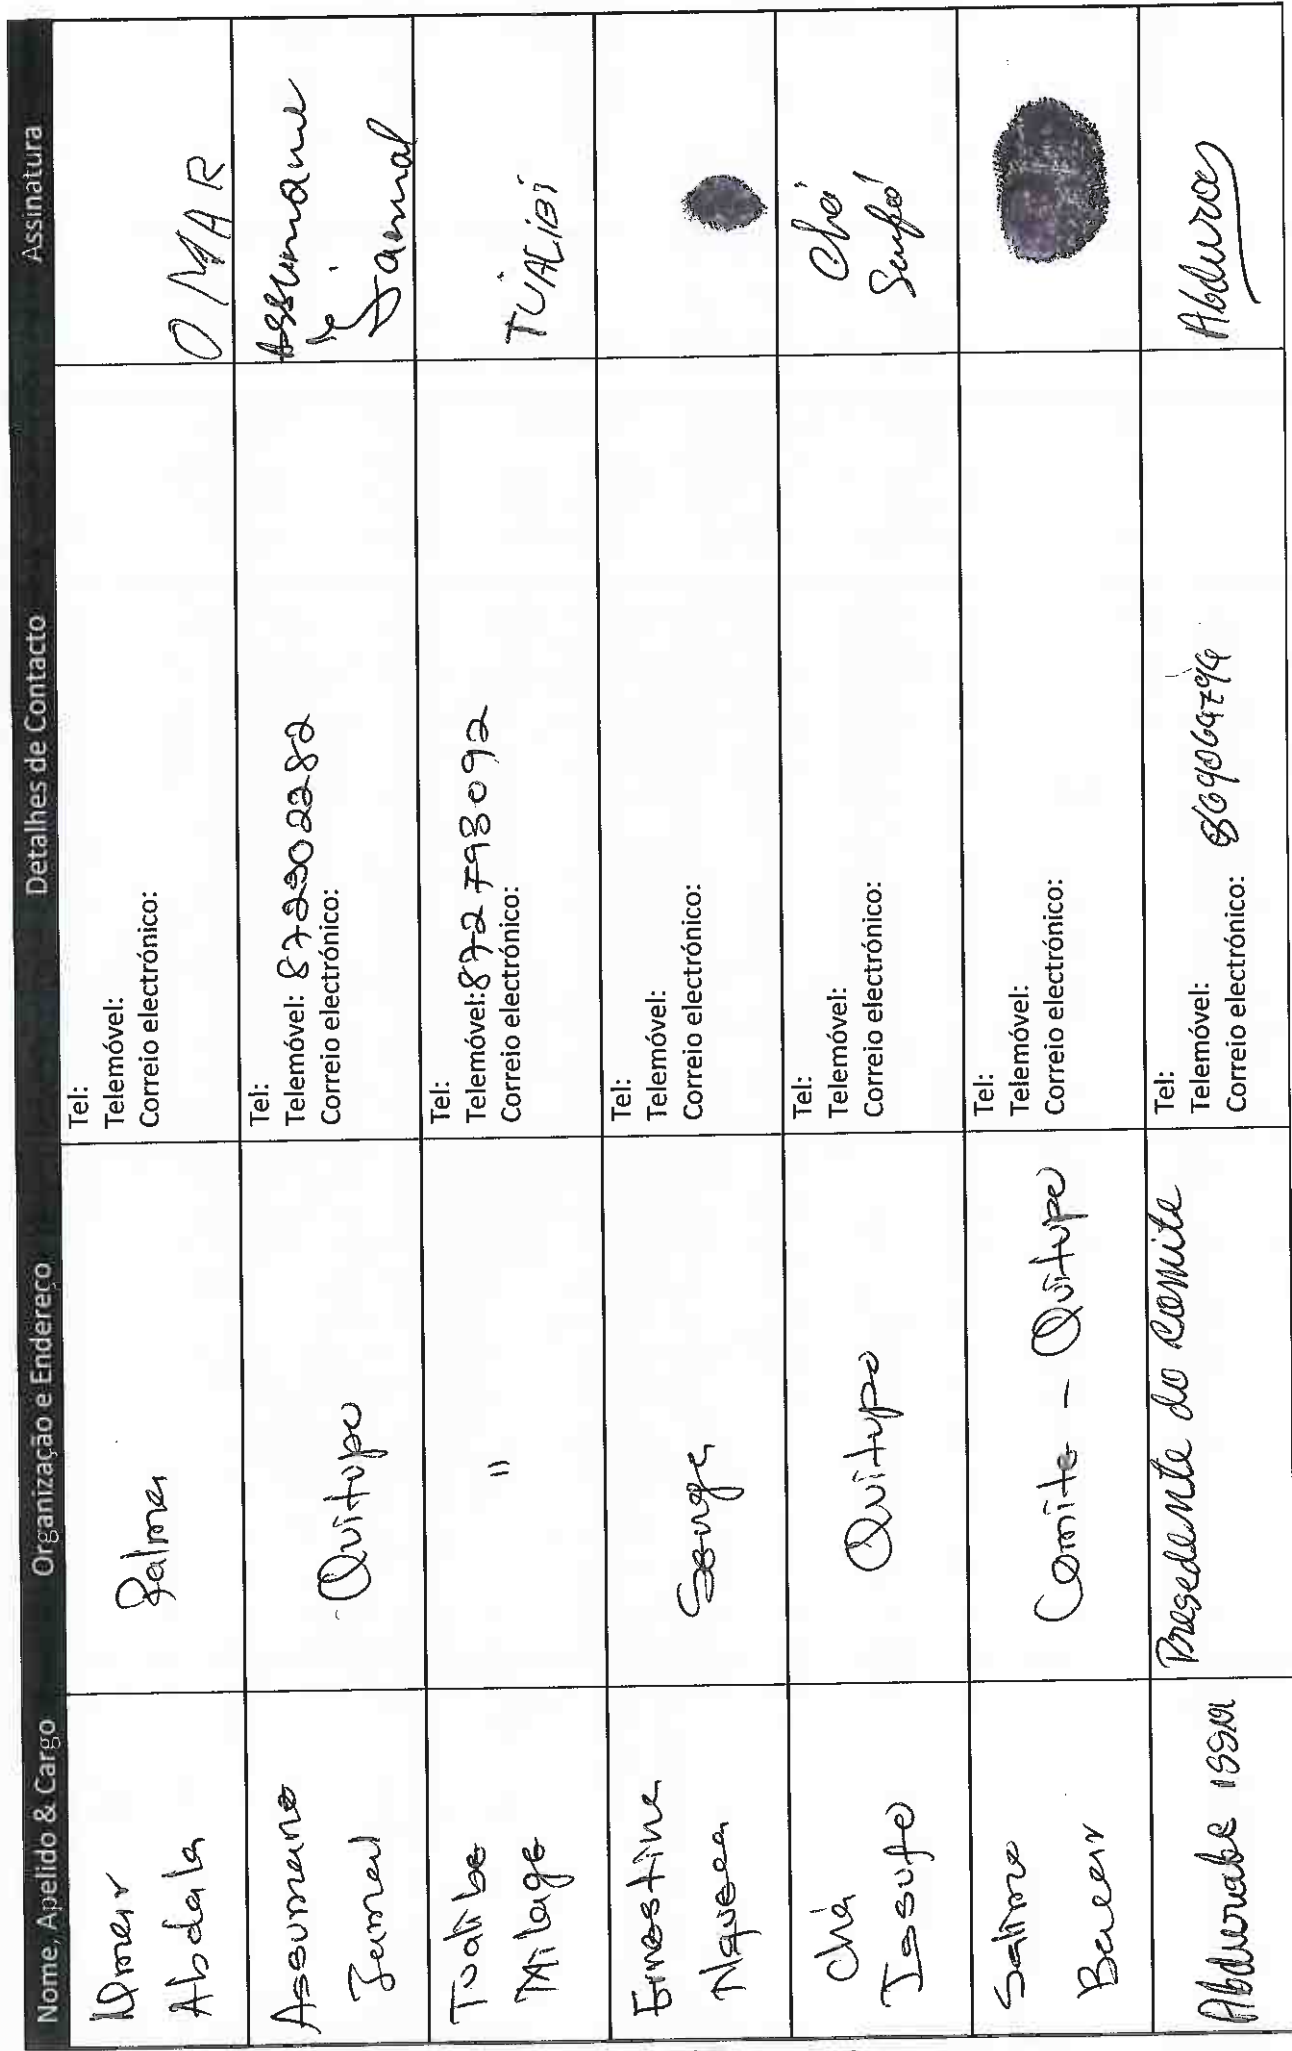 Nome, Apelido & Cargo Organização e Endereço Detalhes de Contacto Assinatura
Omar
Abdala
Palma
Tel:
Telemóvel:
Correio electrónico:
OMAR
Assumane
Jamal
Quitupo
Tel:
Telemóvel: 872302282
Correio electrónico:
Assumane
Jamal
Tualibo
Milage
"
Tel:
Telemóvel: 872793092
Correio electrónico:
TUALIBI
Ernestina
Senga
Tel:
Telemóvel:
Correio electrónico:
Chá
Issufo
Quitupo
Tel:
Telemóvel:
Correio electrónico:
Chá
Salimo
Bacar
Comite - Quitupo
Tel:
Telemóvel:
Correio electrónico:
Abdurabe issa
Presedente do comite
Tel:
Telemóvel:
Correio electrónico: